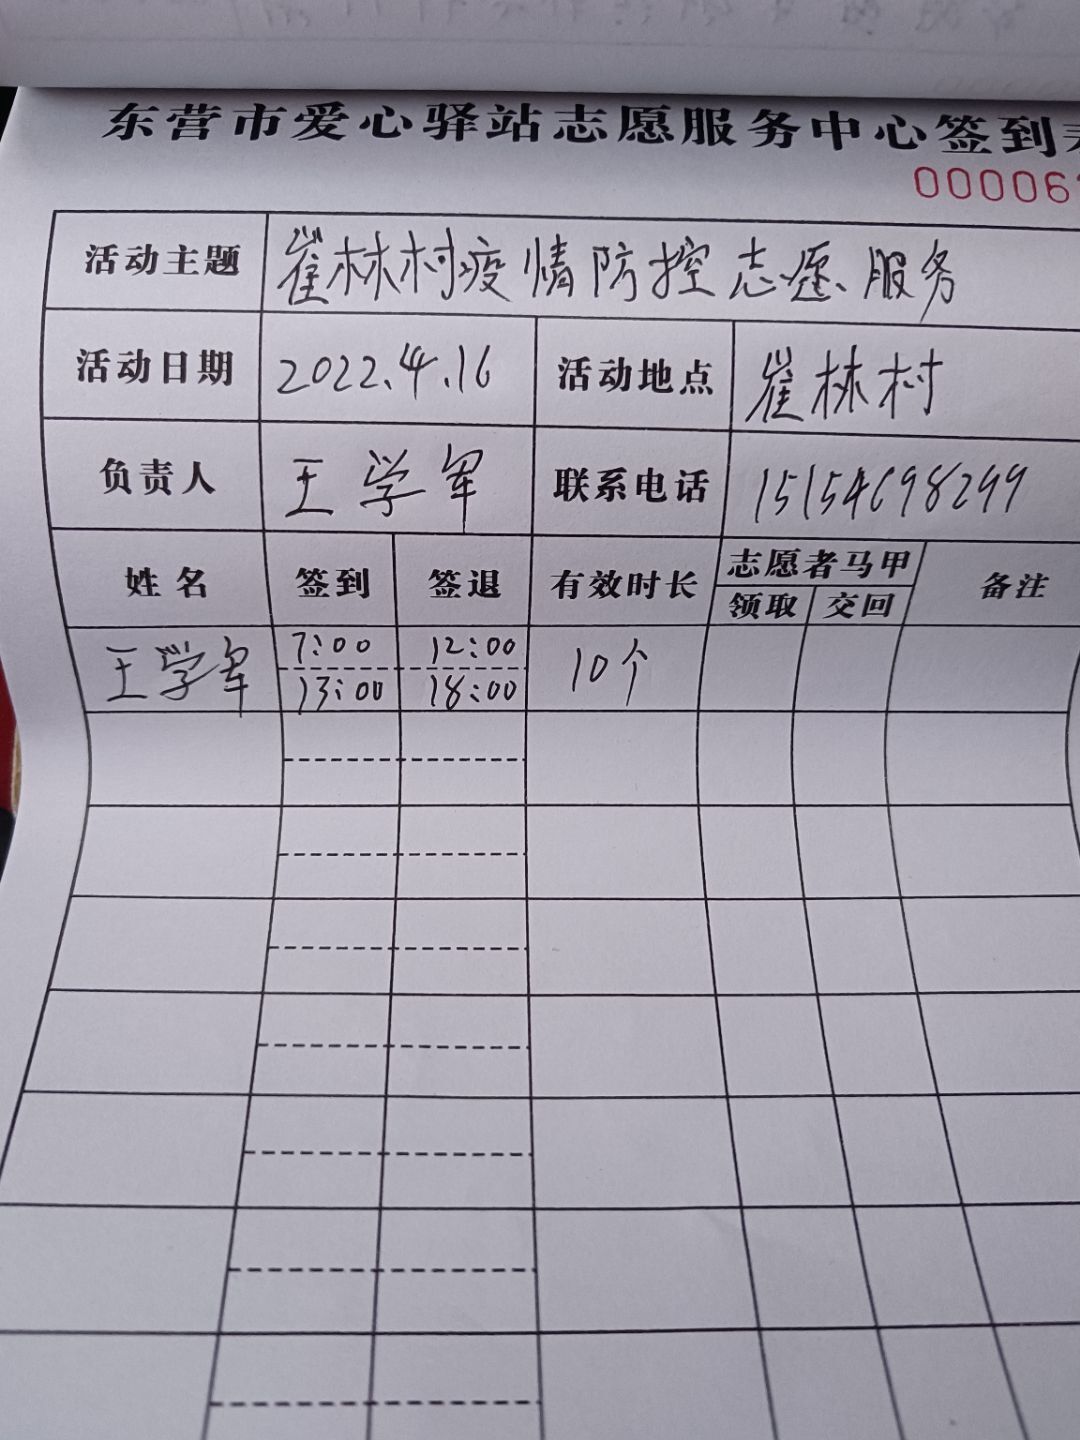 东营市爱心驿站志愿服务中心签到表
00006
活动主题 崔林村疫情防控志愿服务
活动日期 2022.4.16 活动地点 崔林村
负责人 王学军 联系电话 15154698299
姓名 签到 签退 有效时长 志愿者马甲 备注
领取 交回
王学军 7:00 12:00 10个
13:00 18:00